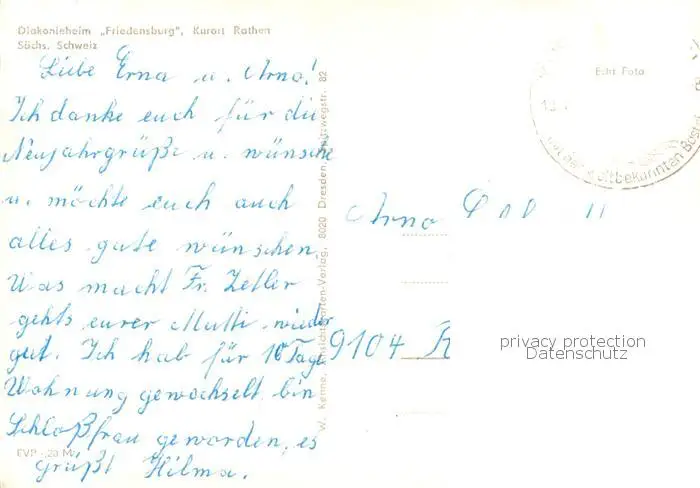 Diakonieheim „Friedensburg", Kurort Rathen
Sächs. Schweiz
Liebe Erna u. Arno!
Ich danke euch für die
Neujahrgrüße u. wünsche
u. möchte euch auch
alles gute wünschen.
Was macht Fr. Zetler
gehts eurer Mutti wieder
gut. Ich hab für 10 Tage
Wohnung gewechselt bin
Schloßfrau geworden, es
grüßt Hilma.
EVP -,20 M
8020 Dresden
82
Echt Foto
Arno
9104
privacy protection
Datenschutz